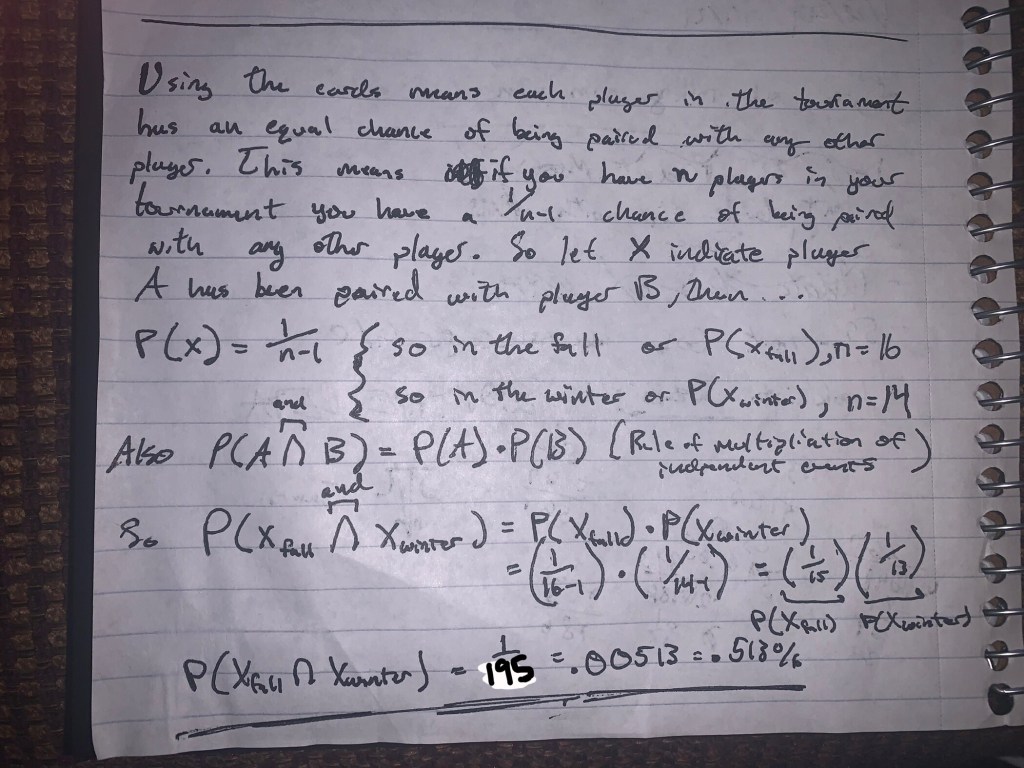 Using the cards means each player in the tournament
has an equal chance of being paired with any other
player. This means if you have n players in your
tournament you have a 1/n-1 chance of being paired
with any other player. So let X indicate player
A has been paired with player B, then...
P(x) = 1/n-1 { so in the fall or P(x fall), n=16
so in the winter or P(x winter), n=14
and
Also P(A ∩ B) = P(A)·P(B) (Rule of multiplication of
independent events)
and
So P(x fall ∩ x winter) = P(x fall)·P(x winter)
= (1/16-1)·(1/14-1) = (1/15)(1/13)
P(x fall) P(x winter)
P(x fall ∩ x winter) = 1/195 = .00513 = .513%